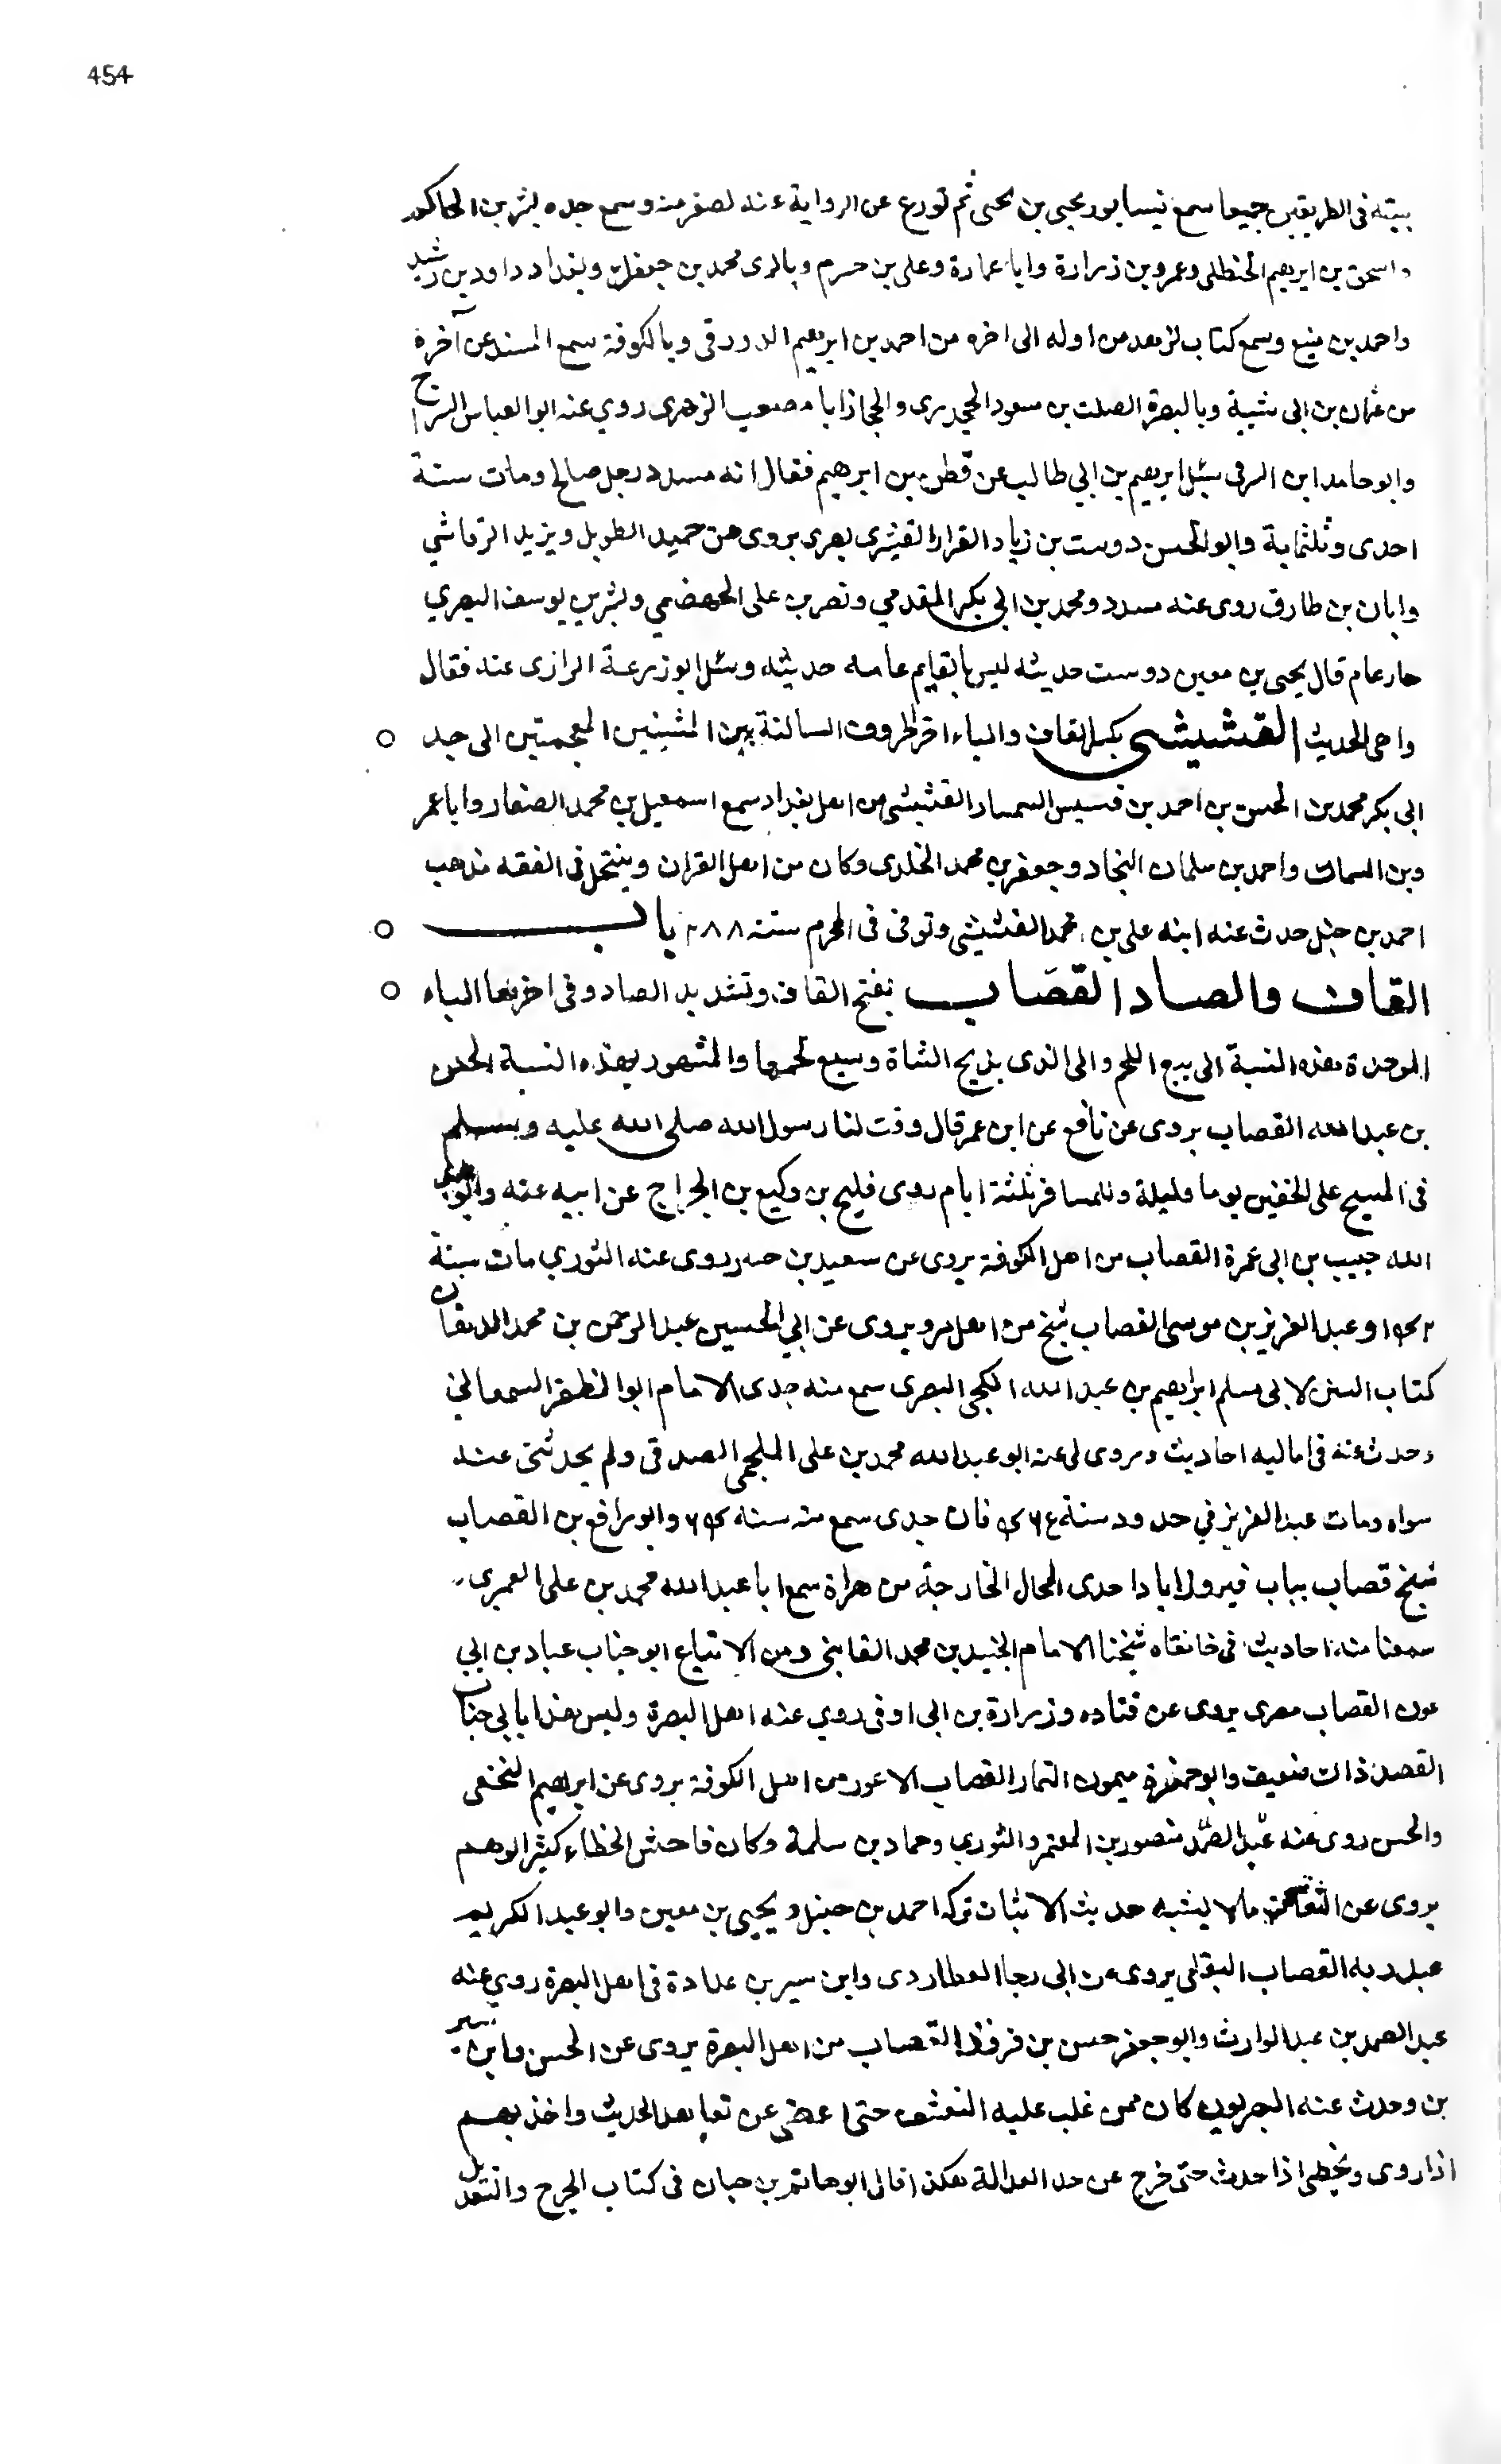 454
بيته فى الطريقين جميعا سمع نيسابور يحيى بن يحيى ثم تورع عن الرواية عنه لصغر منه وسمع جده بشر بن الحاكور
واسحق بن ابرهيم الحنطلى وعمرو بن زرارة وابا عمارة وعلى بن حرم وبالرى محمد بن وبغداد داود بن رشيد
واحمد بن منيع وسمع كتاب الزهد من اوله الى اخره من احمد بن ابرهيم الدورقى وبالكوفة سمع المسند عن آخرة
من عثمان بن ابى شيبة وبالبصرة الصلت بن مسعود الجحدرى والحجاز ابا مصعب الزهرى روي عنه ابو العباس السراج
وابو حامد ابن الشرقى سئل ابرهيم بن ابي طالب عن قطن بن ابرهيم فقال انه مسدد رجل صالح ومات سنة
احدى وثلثماية وابو الحسن دوست بن زياد القزاز القشيرى بصرى يروى عن حميد الطويل ويزيد الرقاشي
وابان بن طارق روى عنه مسدد ومحمد بن ابى بكر المقدمي ونصر بن على الجهضمي وبشر بن يوسف البصري
جار عام قال يحيى بن معين دوست حديثه ليس بالقايم عامه حديثه وسئل ابو زرعة الرازى عنه فقال
واهى الحديث القشيشى بكسر القاف والياء اخر الحروف الساكنة بين الشينين المعجمتين الى جد
ابى بكر محمد بن الحسن بن احمد بن قشيش السمسار القشيشى من اهل بغداد سمع اسمعيل بن محمد الصفار وابا عمر
وبن السماك واحمد بن سلمان النجاد وجعفر بن محمد الخلدى وكان من اهل القران وينتحل فى الفقه مذهب
احمد بن حنبل حدث عنه ابنه على بن محمد القشيشى وتوفى فى المحرم سنة باب
القاف والصاد القصاب بفتح القاف وتشديد الصاد وفى اخرها الباء
الموحدة هذه النسبة الى بيع اللحم والى الذى يذبح الشاة ويبيع لحمها والمشهور بهذه النسبة الحسن
بن عبد الله القصاب يروى عن نافع عن ابن عمر قال وقت لنا رسول الله صلى الله عليه وسلم
فى المسح على الخفين يوما وليلة وللمسافر ثلثة ايام روى فليح بن وكيع بن الجراح عن ابيه عنه وابو عبد
الله حبيب بن ابى عمرة القصاب من اهل الكوفة يروى عن سعيد بن جبير روى عنه الثوري مات سنة
وعبد العزيز بن موسى القصاب شيخ من اهل مرو يروى عن ابي الحسين عبد الرحمن بن محمد الدهقان
كتاب السنن لابى مسلم ابراهيم بن عبد الله الكجى البصرى سمع منه جدى الامام ابو المظفر السمعاني
وحدث عنه فى اماليه احاديث وروى لى عنه ابو عبد الله محمد بن على الصدقى ولم يحدثنى عنه
سواه ومات عبد العزيز في حدود سنة فان جدى سمع منه سنة وابو رافع بن القصاب
شيخ قصاب بباب فيروزاباد احدى المحال الخارجة من هراة سمع ابا عبد الله محمد بن على العميرى
سمعنا منه احاديث فى خانقاه شيخنا الامام الجنيد بن محمد القاينى ومن الاتباع ابو جناب عباد بن ابي
عون القصاب مصرى يروى عن قتاده وزرارة بن ابى اوفى روي عنه اهل البصرة وليس هذا بابي جناب
القصاب ذاك ضعيف وابو حمزة ميمون التمار القصاب الاعور من اهل الكوفة يروى عن ابراهيم النخعى
والحسن روى عنه عبد الصمد منصور بن المعتمر والثوري وحماد بن سلمة وكان فاحش الخطاء كثير الوهم
يروى عن الثقات ما لا يشبه حديث الاثبات تركه احمد بن حنبل ويحيى بن معين وابو عبد الكريم
عبد ربه القصاب يروى عن ابى رجا العطاردى وابن سيرين عداده فى اهل البصرة روي عنه
عبد الصمد بن عبد الوارث وابو جعفر حسن بن فرقد القصاب من اهل البصرة يروى عن الحسن وابن سير
ين وحدث عنه البصريون كان ممن غلب عليه التقشف حتى اغضى عن تعاهد الحديث واخذ يهم
اذا روى ويخطى اذا حدث حتى خرج عن حد العدالة هكذا قال ابو حاتم بن حبان فى كتاب الجرح والتعديل